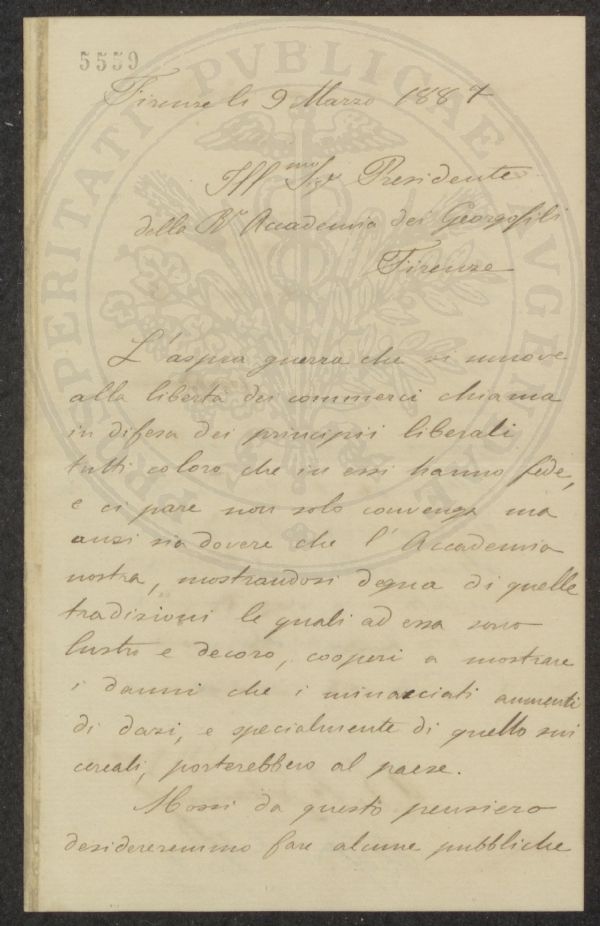 5559
Firenze li 9 Marzo 1887
Ill.mo Sigr Presidente
della Rle Accademia dei Georgofili
Firenze
L'aspra guerra che si muove
alla libertà dei commerci chiama
in difesa dei principii liberali
tutti coloro che in essi hanno fede,
e ci pare non solo convenga ma
anzi sia dovere che l'Accademia
nostra, mostrandosi degna di quelle
tradizioni le quali ad essa sono
lustro e decoro, cooperi a mostrare
i danni che i minacciati aumenti
di dazi, e specialmente di quello sui
cereali, porterebbero al paese.
Mossi da questo pensiero
desidereremmo fare alcune pubbliche
PROSPERITATI PVBLICAE AVGENDAE